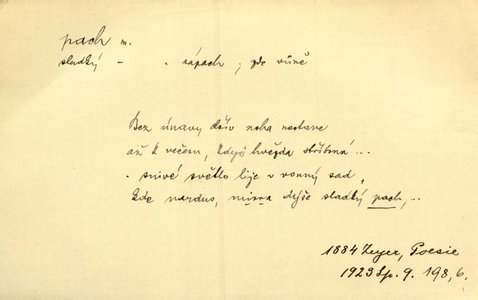 pach m.
sladký - . zápach ; zde vůně
Bez únavy dřív noha nestane
až k večeru, když hvězda stříbrná...
snivé světlo lije v vonný sad,
kde nardus, mirra dýše sladký pach,...
1884 Zeyer, Poesie
1923 Sp. 9. 198, 6.